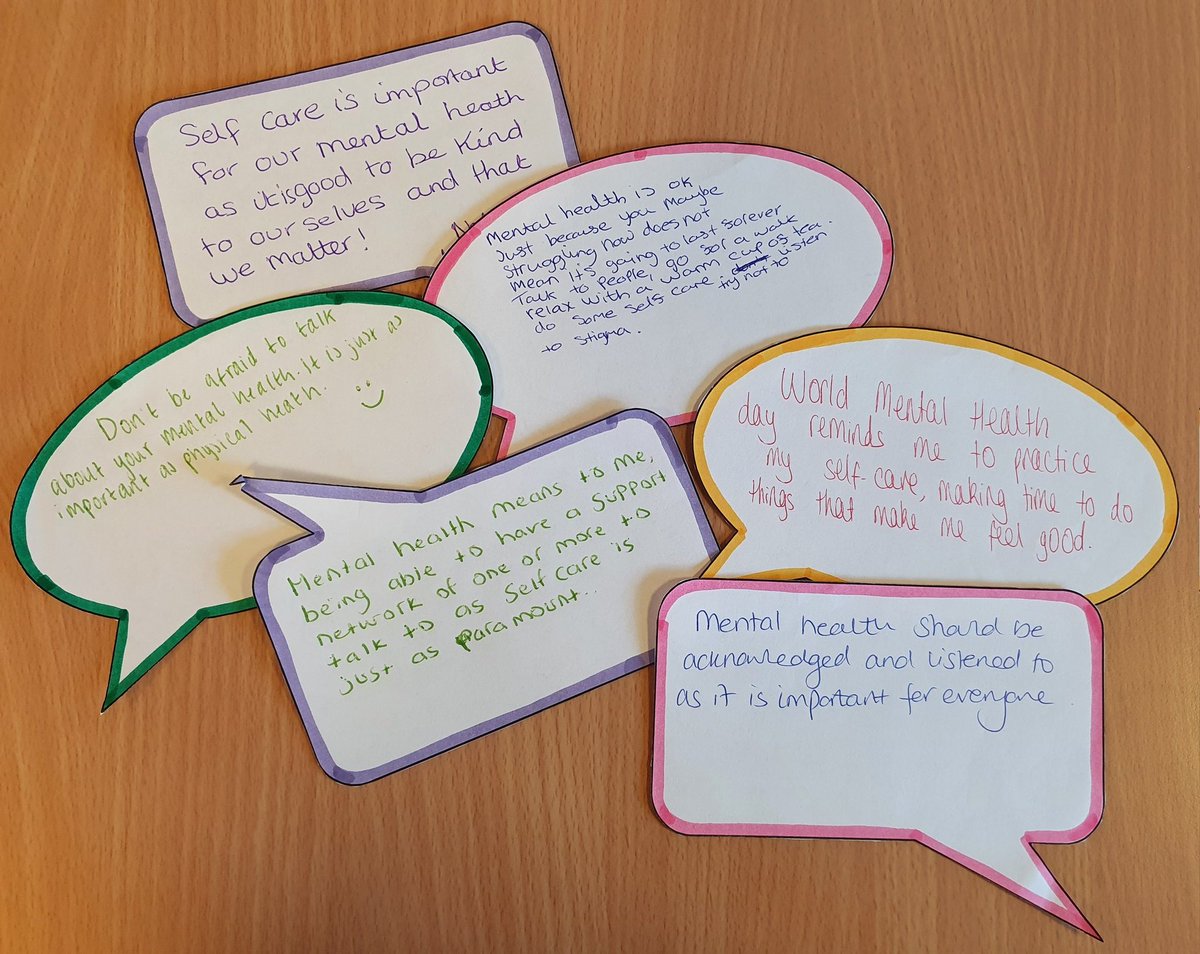 Self Care is important
for our mental heath
as it is good to be Kind
to ourselves and that
we matter!
Mental health is ok
Just because you maybe
struggling now does not
mean it's going to last forever.
Talk to people, go for a walk
relax with a warm cup of tea
do some self care try not to listen
to stigma.
Don't be afraid to talk
about your mental health. It is just as
important as physical heath.
World Mental Health
day reminds me to practice
my self-care, making time to do
things that make me feel good.
Mental health means to me,
being able to have a Support
network of one or more to
talk to as Self care is
just as paramount..
Mental health should be
acknowledged and listened to
as it is important for everyone